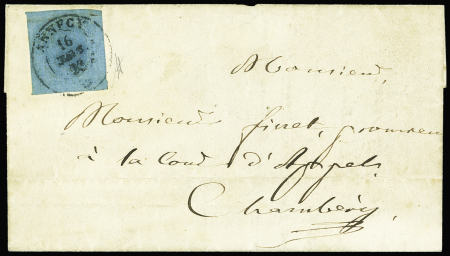 ANNECY
16
Monsieur,
Monsieur finet, procureur
à la Cour d'Appel
Chambéry